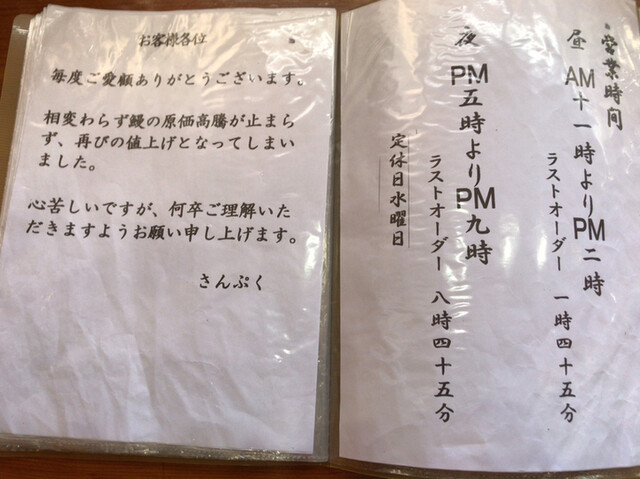 お客様各位
毎度ご愛顧ありがとうございます。
相変わらず鰻の原価高騰が止まら
ず、再びの値上げとなってしまい
ました。
心苦しいですが、何卒ご理解いた
だきますようお願い申し上げます。
さんぷく
営業時間
昼 AM十一時よりPM二時
ラストオーダー 一時四十五分
夜 PM五時よりPM九時
ラストオーダー 八時四十五分
定休日水曜日